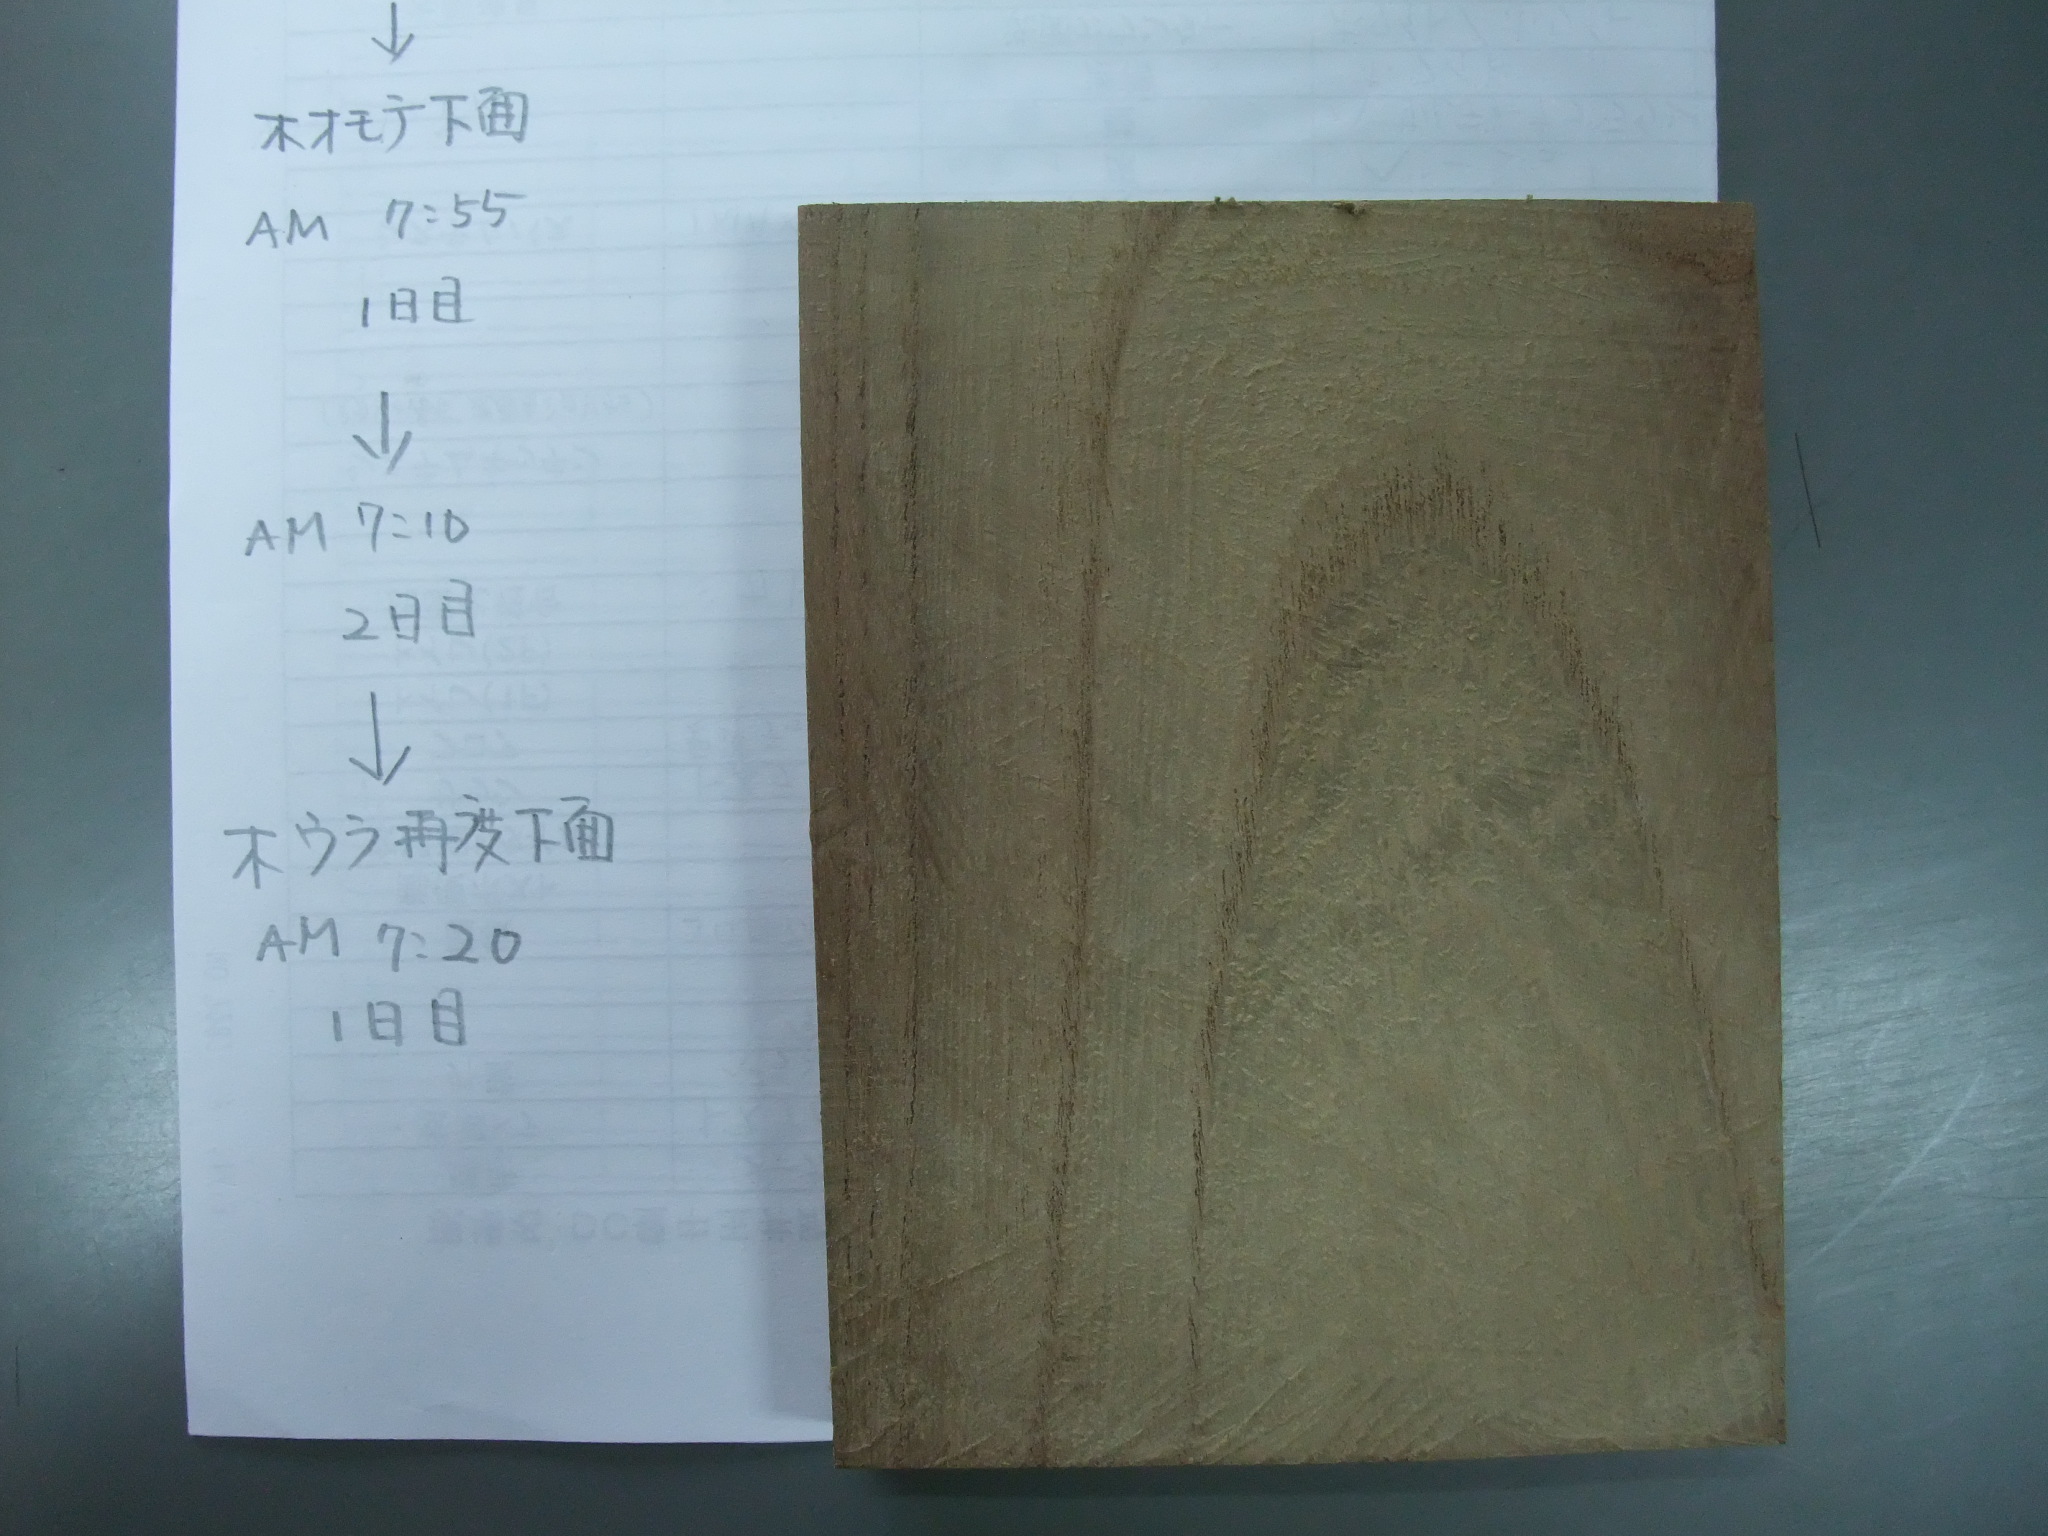 ↓
木オモテ下面
AM 7:55
1日目
↓
AM 7:10
2日目
↓
木ウラ再度下面
AM 7:20
1日目